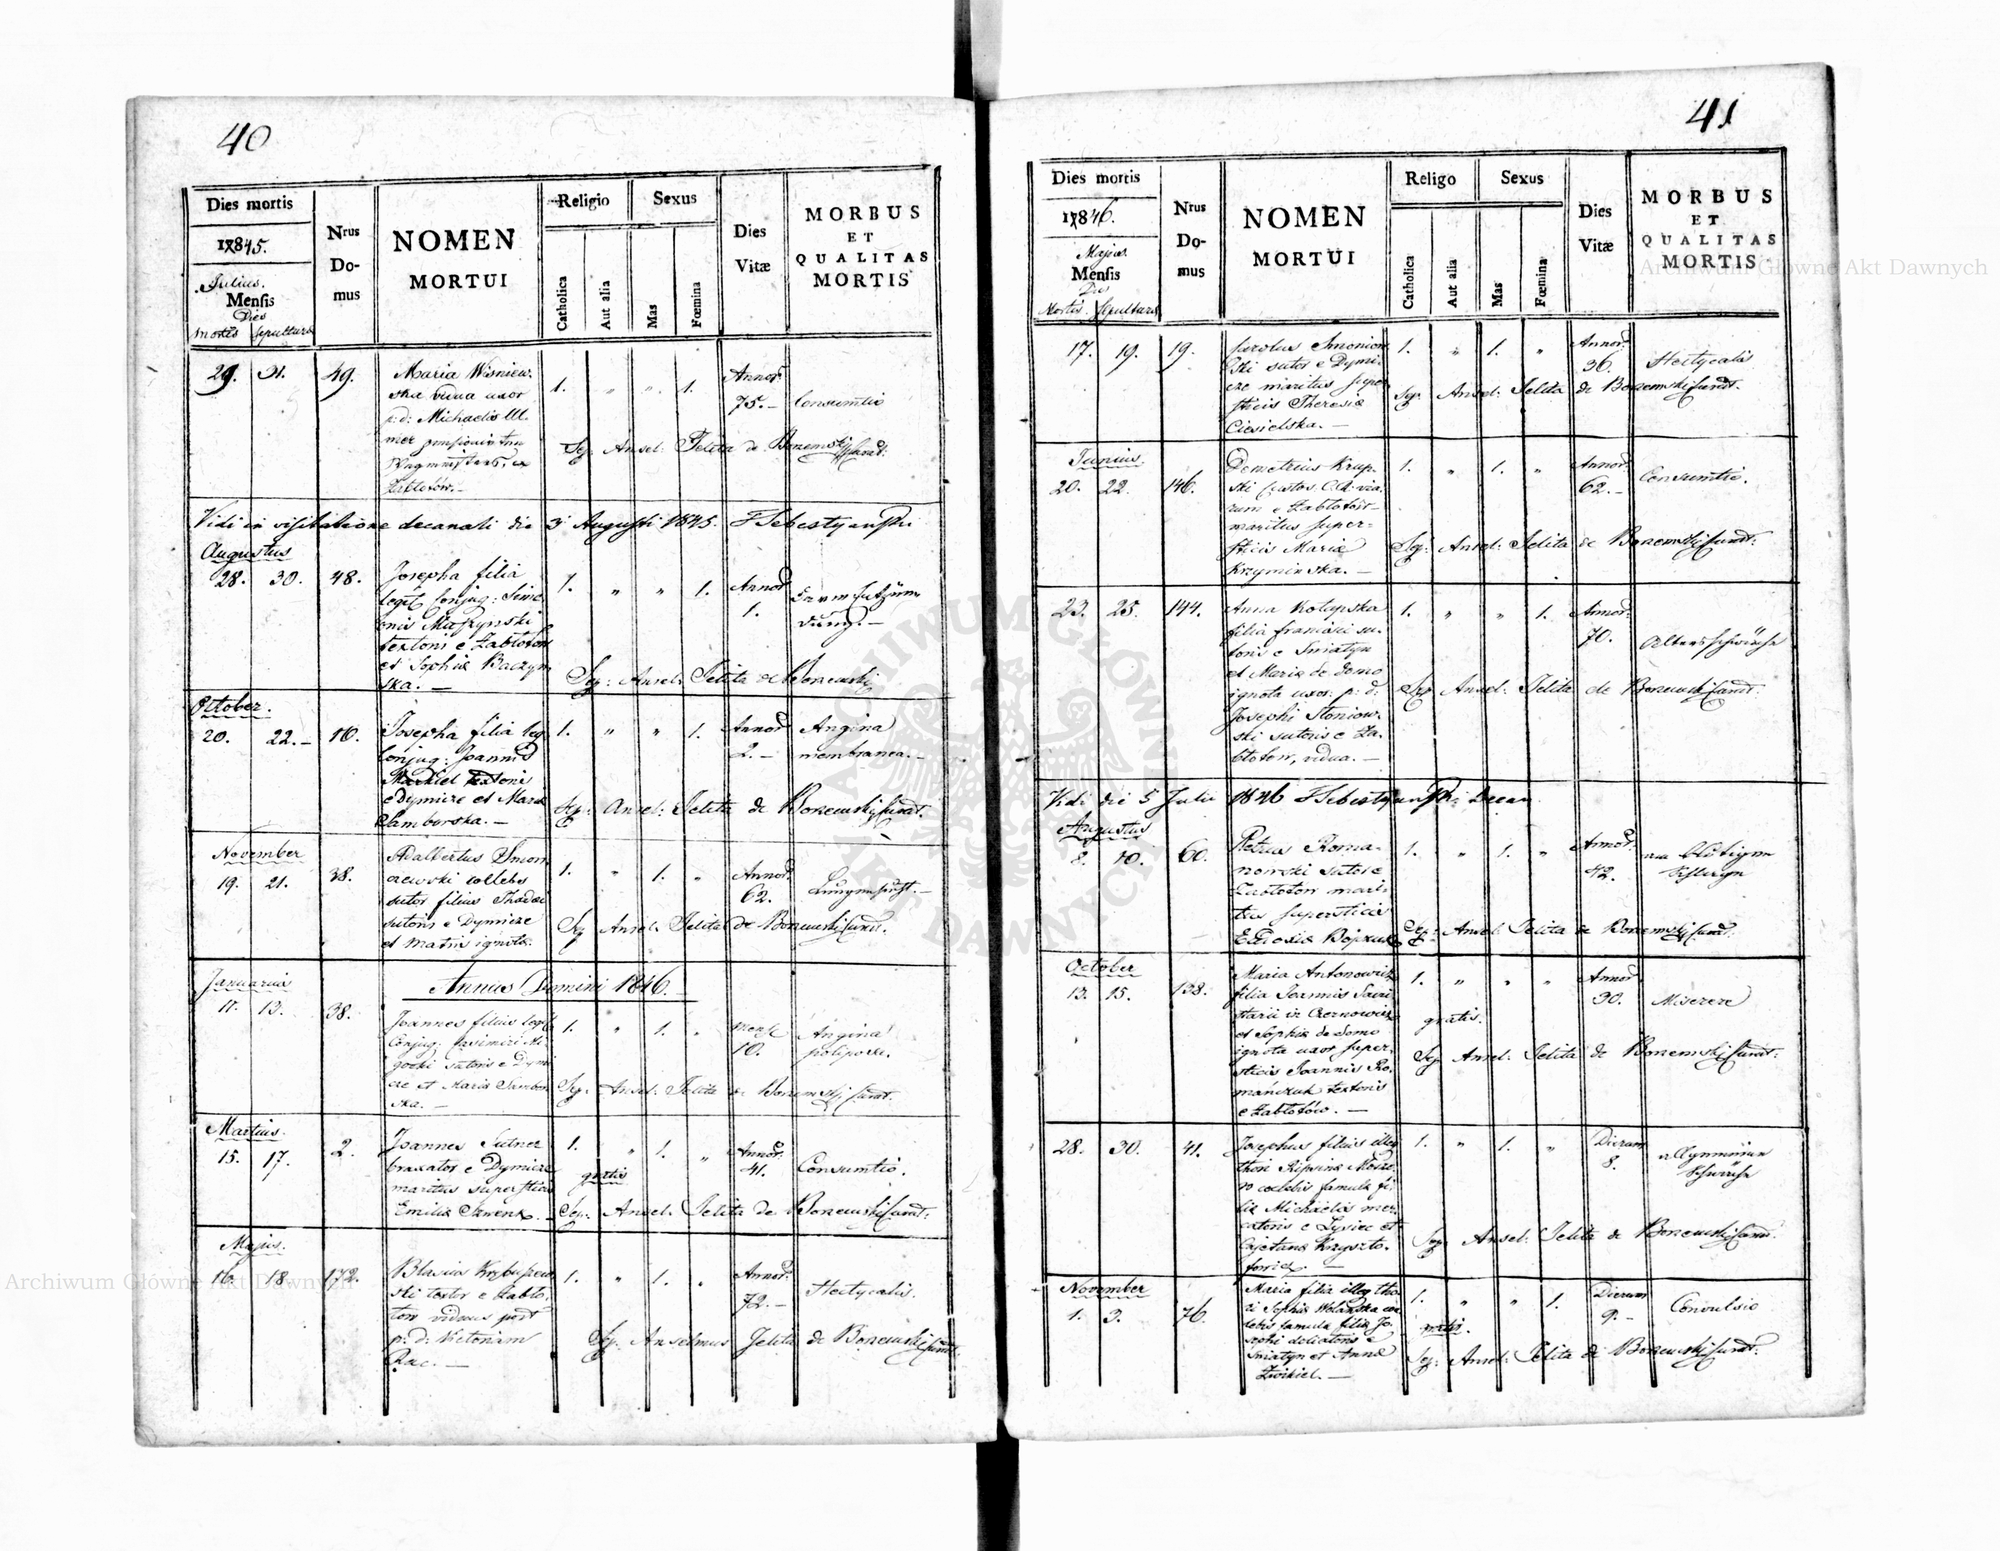 40
Dies mortis
1845.
Julius.
Mensis
Dies
mortis sepulturæ
Nrus
Do-
mus
NOMEN
MORTUI
Religio
Catholica
Aut alia
Sexus
Mas
Fœmina
Dies
Vitæ
MORBUS
ET
QUALITAS
MORTIS
29. 31. 49.
Maria Wisniew-
ska vidua uxor
p: d: Michaelis Ill-
mer
Zabłotów. —
1. " " 1.
Annor
75. —
Consumtio
Sep: Ansel: Jelita de Borzemski Curat:
Vidi in visitatione decanali die 3 Augusti 1845. FSebestyanski
Augustus
28. 30. 48.
Josepha filia
legit Conjug: Simi-
onis
textoris e Zabłotow
et Sophia Baczyn-
ska. —
1. " " 1.
Annor
1.
Sep: Ansel: Jelita de Borzemski
October.
20. 22. — 16.
Josepha filia leg
Conjug: Joannis
textoris
e Dymicze et Maria
Samborska. —
1. " " 1.
Annor
2. —
Angina
membranea. —
Sep: Ansel: Jelita de Borzemski Curat.
November
19. 21. 38.
Adalbertus Smon-
czewski cœlebs
sutor filius Thadæi
sutoris e Dymicze
et matris ignotæ.
1. " 1. "
Annor.
62.
Sep Ansel: Jelita de Borzemski Curat.
Annus Domini 1846.
Januarius
11. 13. 38.
Joannes filius legit
Conjug: Casimiri Ni-
gocki sutoris e Dymi-
cze et Maria Sambor-
ska. —
1. " 1. "
Mense
10.
Angina
poliposa.
Sep: Ansel: Jelita de Borzemski Curat.
Martius.
15. 17. 2.
Joannes Sutner
braxator e Dymicze
maritus superstitis
Emiliæ
1. " 1. "
gratis
Annor.
41.
Consumtio.
Sep: Ansel: Jelita de Borzemski Curat:
Majus.
16. 18 172.
Blasius
ski textor e Zabło-
tow viduus post
p: d: Victoriam
Rac. —
1. " 1. "
Annor.
72. —
Hectycalis.
Sep: Anselmus Jelita de Borzemski Curat.
41
Dies mortis
1846.
Majus
Mensis
Dies
Mortis. Sepulturæ
Nrus
Do-
mus
NOMEN
MORTUI
Religo
Catholica
Aut alia
Sexus
Mas
Fœmina
Dies
Vitæ
MORBUS
ET
QUALITAS
MORTIS
17. 19. 19.
Carolus Smoniow-
ski sutor e Dymi-
cze maritus super-
stitis Theresiæ
Ciesielska. —
1. " 1. "
Annor.
36.
Hectycalis
Sep. Ansel: Jelita de Borzemski Curat.
Junius
20. 22. 146.
Demetrius Krup-
ski custos C.R. via-
rum e Zabłotow
maritus super-
stitis Mariæ
Krzyminska. —
1. " 1. "
Annor.
62. —
Consumtio.
Sep: Ansel: Jelita de Borzemski Curat:
23. 25. 144.
Anna Kotypska
filia Francisci su-
toris e Sniatyn
et Maria de domo
ignota uxor p: d:
Josephi Stoniow-
ski sutoris e Za-
błotow, vidua. —
1. " " 1.
Annor.
70.
Altersschwäche
Sep Ansel: Jelita de Borzemski Curat:
Vidi die 5 Julii 1846 FSebestyanski Decan
Augustus
8. 10. 60.
Petrus Roma-
nowski sutor e
Zabłotow mari-
tus superstitis
1. " 1. "
Annor.
42.
Sep: Ansel: Jelita de Borzemski Curat:
October
13. 15. 138.
Maria Antonowicz
filia Joannis
e Czernowicz
et Sophia de domo
ignota uxor super-
stitis Joannis Ro-
mańczuk textoris
e Zabłotów. —
1. " " "
gratis.
Annor.
30.
Miserere
Sep Ansel: Jelita de Borzemski Curat:
28. 30. 41.
Josephus filius illeg
thori Ripsina
cœlebis famula fi-
lia Michaelis mer-
catoris e Lysiec et
Cajetana Krzyszto-
fowicz. —
1. " 1. "
Dierum
8.
Sep: Ansel: Jelita de Borzemski Curat.
November
1. 3. 76.
Maria filia illeg tho-
ri Sophia Wolanska cœ-
lebis famula filia Jo-
sephi doliatoris e
Sniatyn et Anna
1. " " 1.
gratis.
Dierum
9. —
Convulsio
Sep: Ansel: Jelita de Borzemski Curat:
Archiwum Główne Akt Dawnych
Archiwum Główne Akt Dawnych
ARCHIWUM GŁÓWNE AKT DAWNYCH